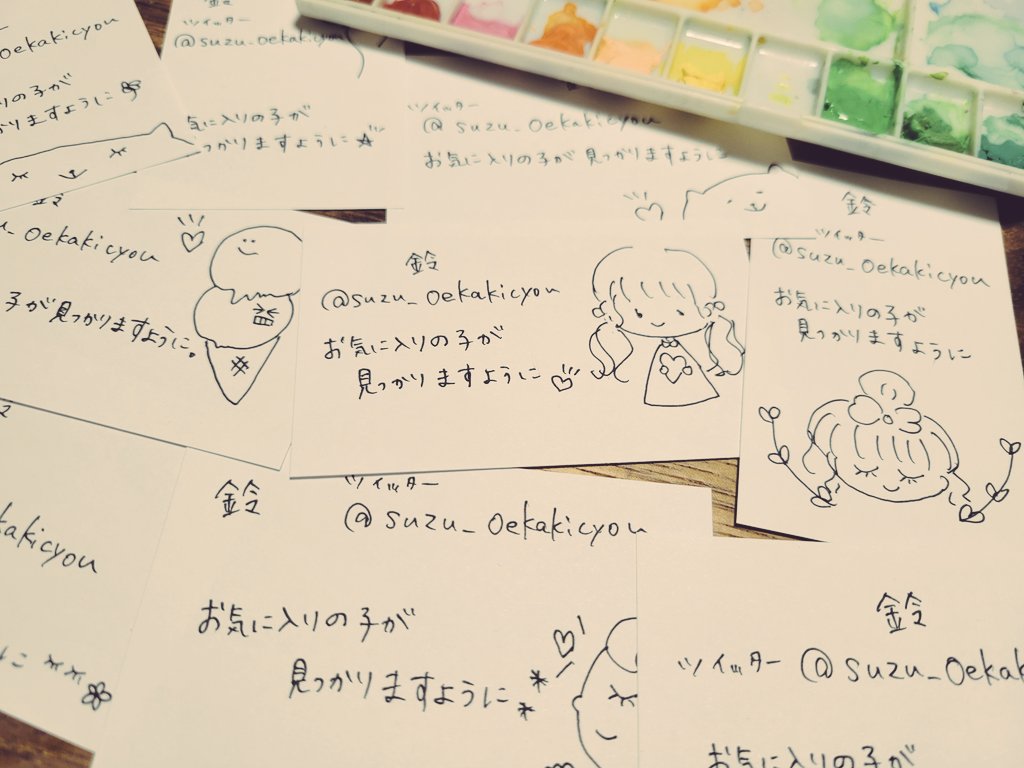 oekakicyou
りの子が
りますように
鈴
ツイッター
@suzu_oekakicyou
気に入りの子が
つかりますように
ツイッター
@suzu_oekakicyou
お気に入りの子が 見つかりますように
oekakicyou
子が見つかりますように。
鈴
@suzu_oekakicyou
お気に入りの子が
見つかりますように
鈴
ツイッター
@suzu_oekakicyou
お気に入りの子が
見つかりますように
kakicyou
鈴
ツイッター
@suzu_oekakicyou
お気に入りの子が
見つかりますように
鈴
ツイッター @suzu_oekak
お気に入りの子が